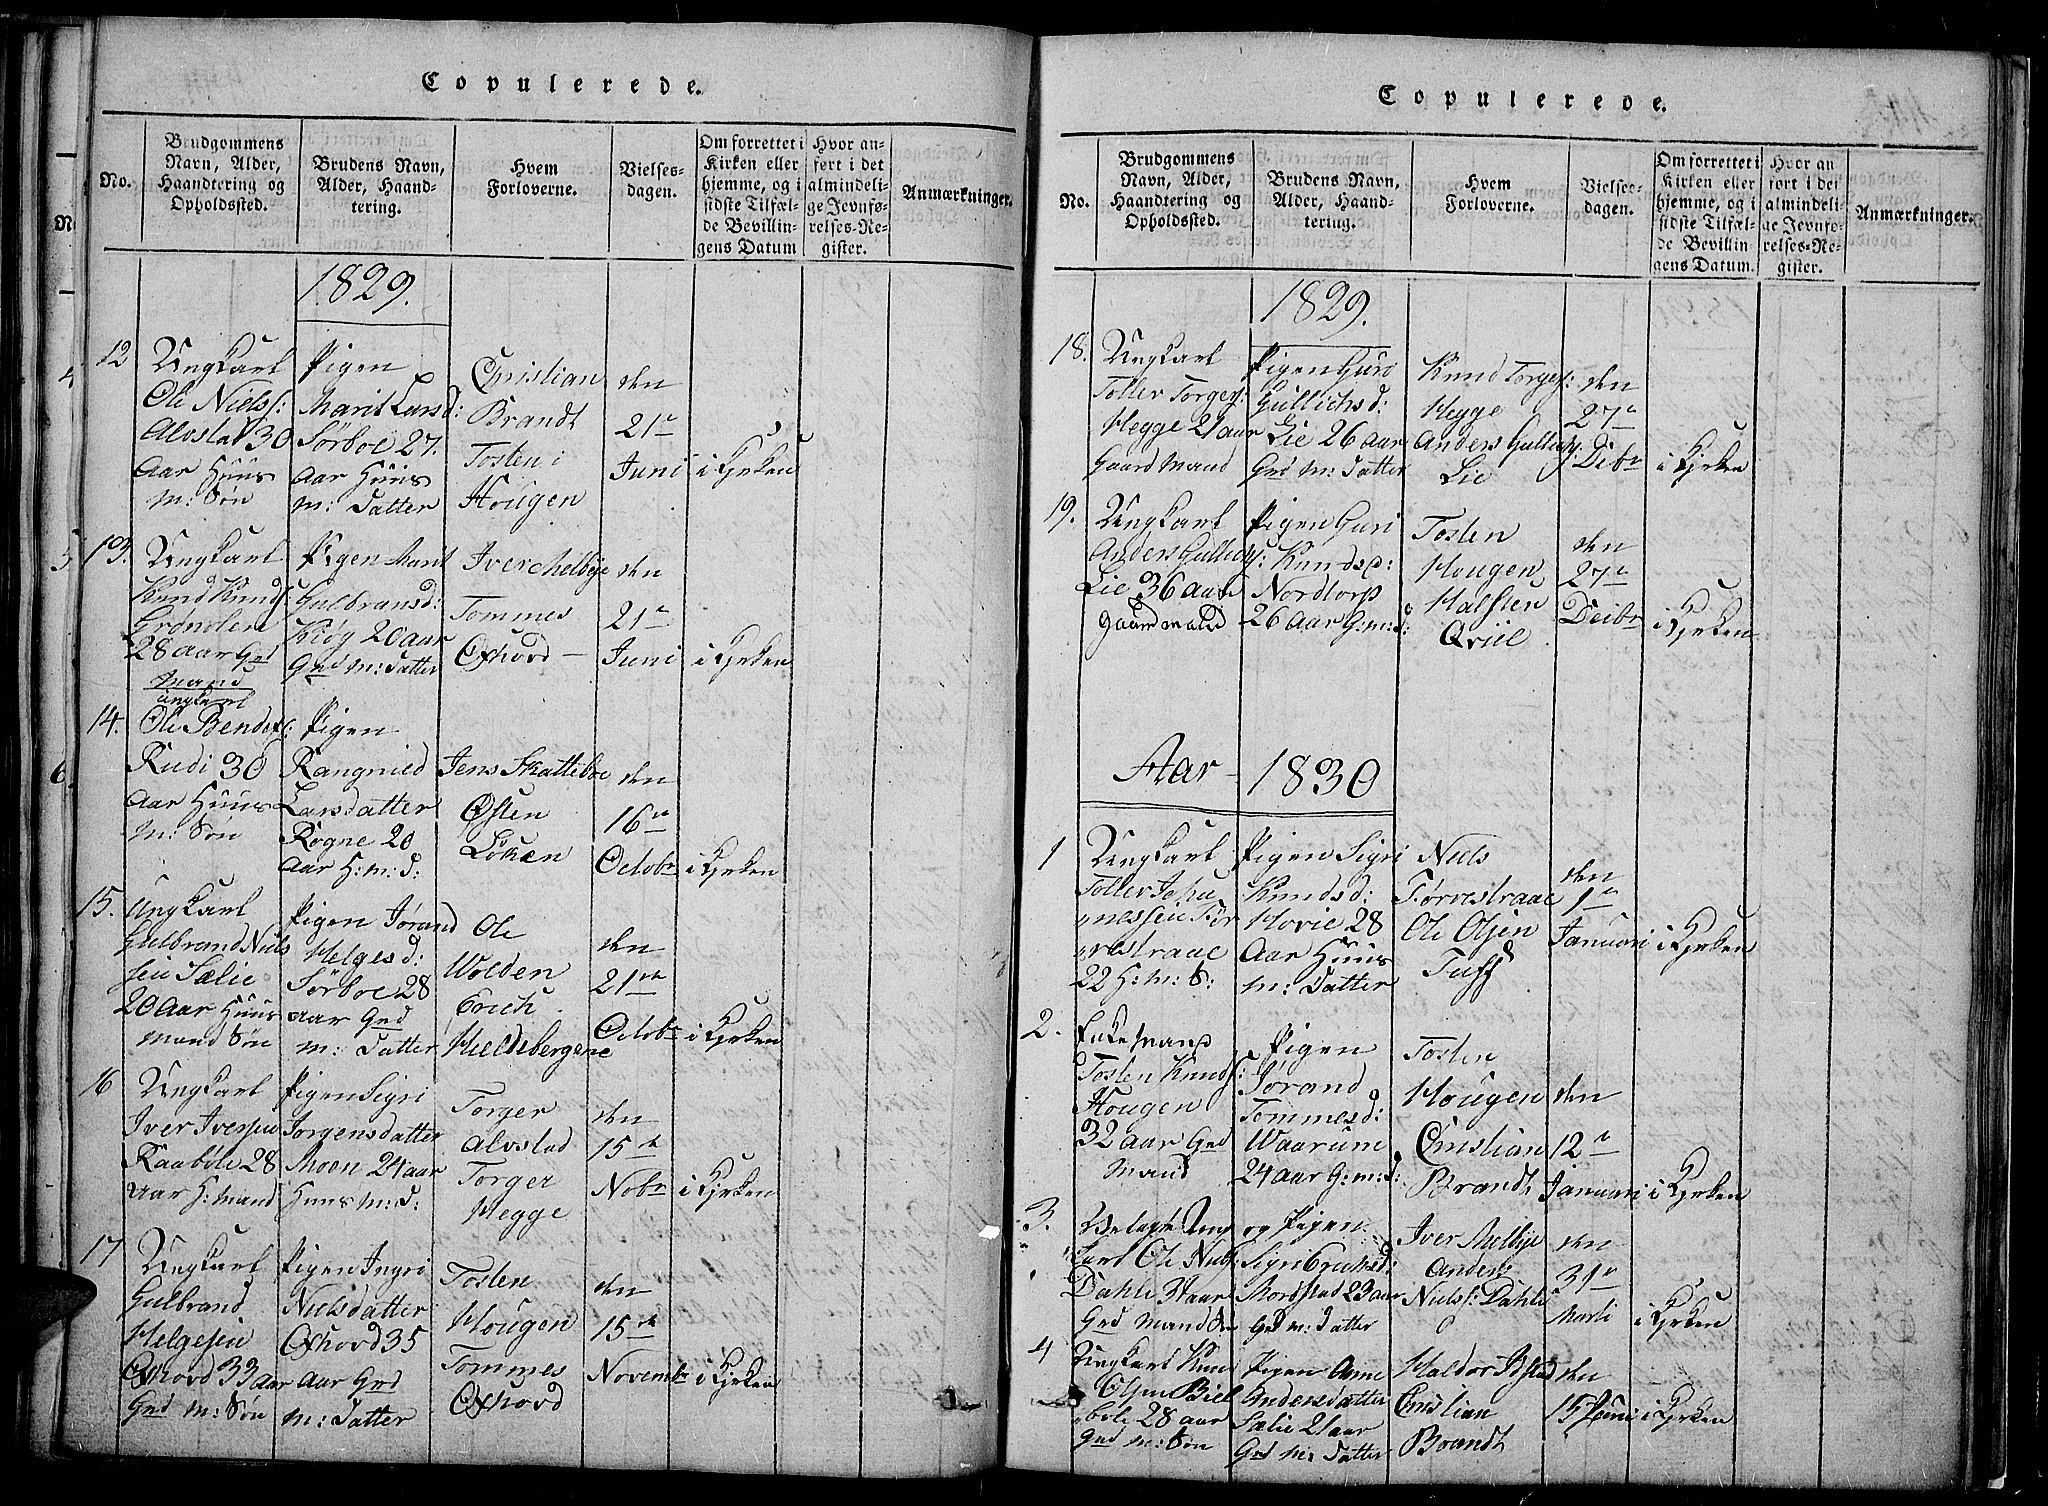 Copulerede.
No.
Brudgommens
Navn, Alder,
Haandtering og
Opholdssted.
Brudens Navn,
Alder, Haand-
tering.
Hvem
Forloverne.
Vielses-
dagen.
Om forrettet i
Kirken eller
hjemme, og i
sidste Tilfæl-
de Bevillin-
gens Datum
Hvor an-
ført i det
almindeli-
ge Jevnfø-
relses-Re-
gister.
Anmærkninger.
1829.
12
Ungkarl
Ole Niels:
Alvstad 30
Aar Huus
m: Søn
Pigen
Marit Larsd:
Sørboe 27.
Aar Huus
m: Datter
Christian
Brandt
Tosten i
Hougen
den
21de
Juni
i Kirken
13.
Ungkarl
Knud Knuds:
Grönolen
28 Aar Grd
Mand
Pigen Marit
Gulbransd:
Krøg 20 Aar
Grd m: Datter
Iver Melbye
Tommes
Oxhovd
den
21de
Juni
i Kirken
14.
Ungkarl
Ole Bendix:
Rudi 30
Aar Huus
m: Søn
Pigen
Rangnied
Larsdatter
Rogne 20
Aar H: m: d:
Jens Skatteboe
Østen
Løken
den
16de
Octobr
i Kirken
15.
Ungkarl
Gulbrand Niels
sen Sælie
20 Aar Huus
mand Søn
Pigen Jørand
Helgesd:
Sørboe 28
Aar Grd
m: Datter
Ole
Wolden
Erich
Hieldsbergene
den
21de
Octobr
i Kirken
16
Ungkarl
Iver Iversen
Raabøle 28
Aar H: Mand
Pigen Sigri
Jörgensdatter
Moen 24 Aar
Huus m: d:
Torger
Alvstad
Torger
Hegge
den
15de
Nobr
i Kirken
17
Ungkarl
Gulbrand
Helgesen
Oxhovd 33 Aar
Grd m: Søn
Pigen Ingri
Nielsdatter
Oxhovd 35
Aar Grd
m: Datter
Tosten
Hougen
Tommes
Oxhovd
den
15de
Novembr
i Kirken
Copulerede.
No.
Brudgommens
Navn, Alder,
Haandtering og
Opholdssted.
Brudens Navn,
Alder, Haand-
tering.
Hvem
Forloverne.
Vielses-
dagen.
Om forrettet i
Kirken eller
hjemme, og i
sidste Tilfæl-
de Bevillin-
gens Datum.
Hvor an
ført i det
almindeli-
ge Jevnfø-
relses-Re-
gister.
Anmærkninger.
1829.
18.
Ungkarl
Toller Torges:
Hegge 21 Aar
Gaard Mand
Pigen Guro
Gullichsd:
Lie 26 Aar
Grd m: Datter
Knud Torges:
Hegge
Anders Gullichs:
Lie
den
27de
Debr
i Kirken
19.
Ungkarl
Anders Gullichs:
Lie 36 Aar
Gaardmand
Pigen Guri
Knudsd:
Nordtorp
26 Aar G: m: d:
Tosten
Hougen
Halsten
Qviil
den
27de
Debr
i Kirken
Aar - 1830
1
Ungkarl
Toller Joha
nessen För
restraae
22 H: m: S:
Pigen Sigri
Knudsd:
Hovie 28
Aar Huus
m: Datter
Niels
Førrestraae
Ole Olsen
Tuff
den
1de
Januari
i Kirken
2.
Enkemand
Tosten Knuds:
Hougen
32 Aar Grd
Mand
Pigen
Jørand
Tommesd:
Waarum
24 Aar G: m: d:
Tosten
Hougen
Christian
Brandt
den
12de
Januari
i Kirken
3.
Ung
karl Ole Niels:
Dahle
Grd Mand
og Pigen
Sigri Erichsd:
Mordstad 23 Aar
Grd m: Datter
Iver Melbye
Anders
Niels: Dahle
den
31de
Marti
i Kirken
4
Ungkarl Knud
Olsen Biel
bøle 28 Aar
Grd m: Søn
Pigen Anne
Andersdatter
Sælie 21 Aar
Grd m: Datter
Haldor Ilstad
Christian
Brandt
den
15 Juni
i Kirken